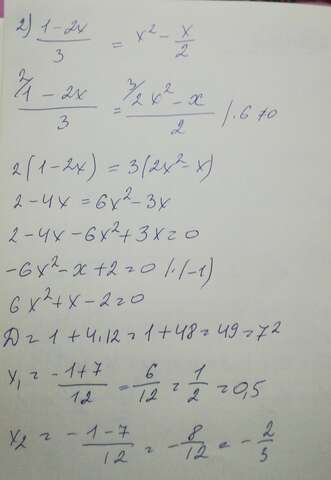 2) (1-2x)/3 = x² - x/2
²⁄(1-2x)/3 = ³⁄(2x²-x)/2 /·6≠0
2(1-2x) = 3(2x²-x)
2-4x = 6x²-3x
2-4x-6x²+3x=0
-6x²-x+2=0 /·(-1)
6x²+x-2=0
D = 1+4·12 = 1+48 = 49 = 7²
x₁ = (-1+7)/12 = 6/12 = 1/2 = 0,5
x₂ = (-1-7)/12 = -8/12 = -2/3